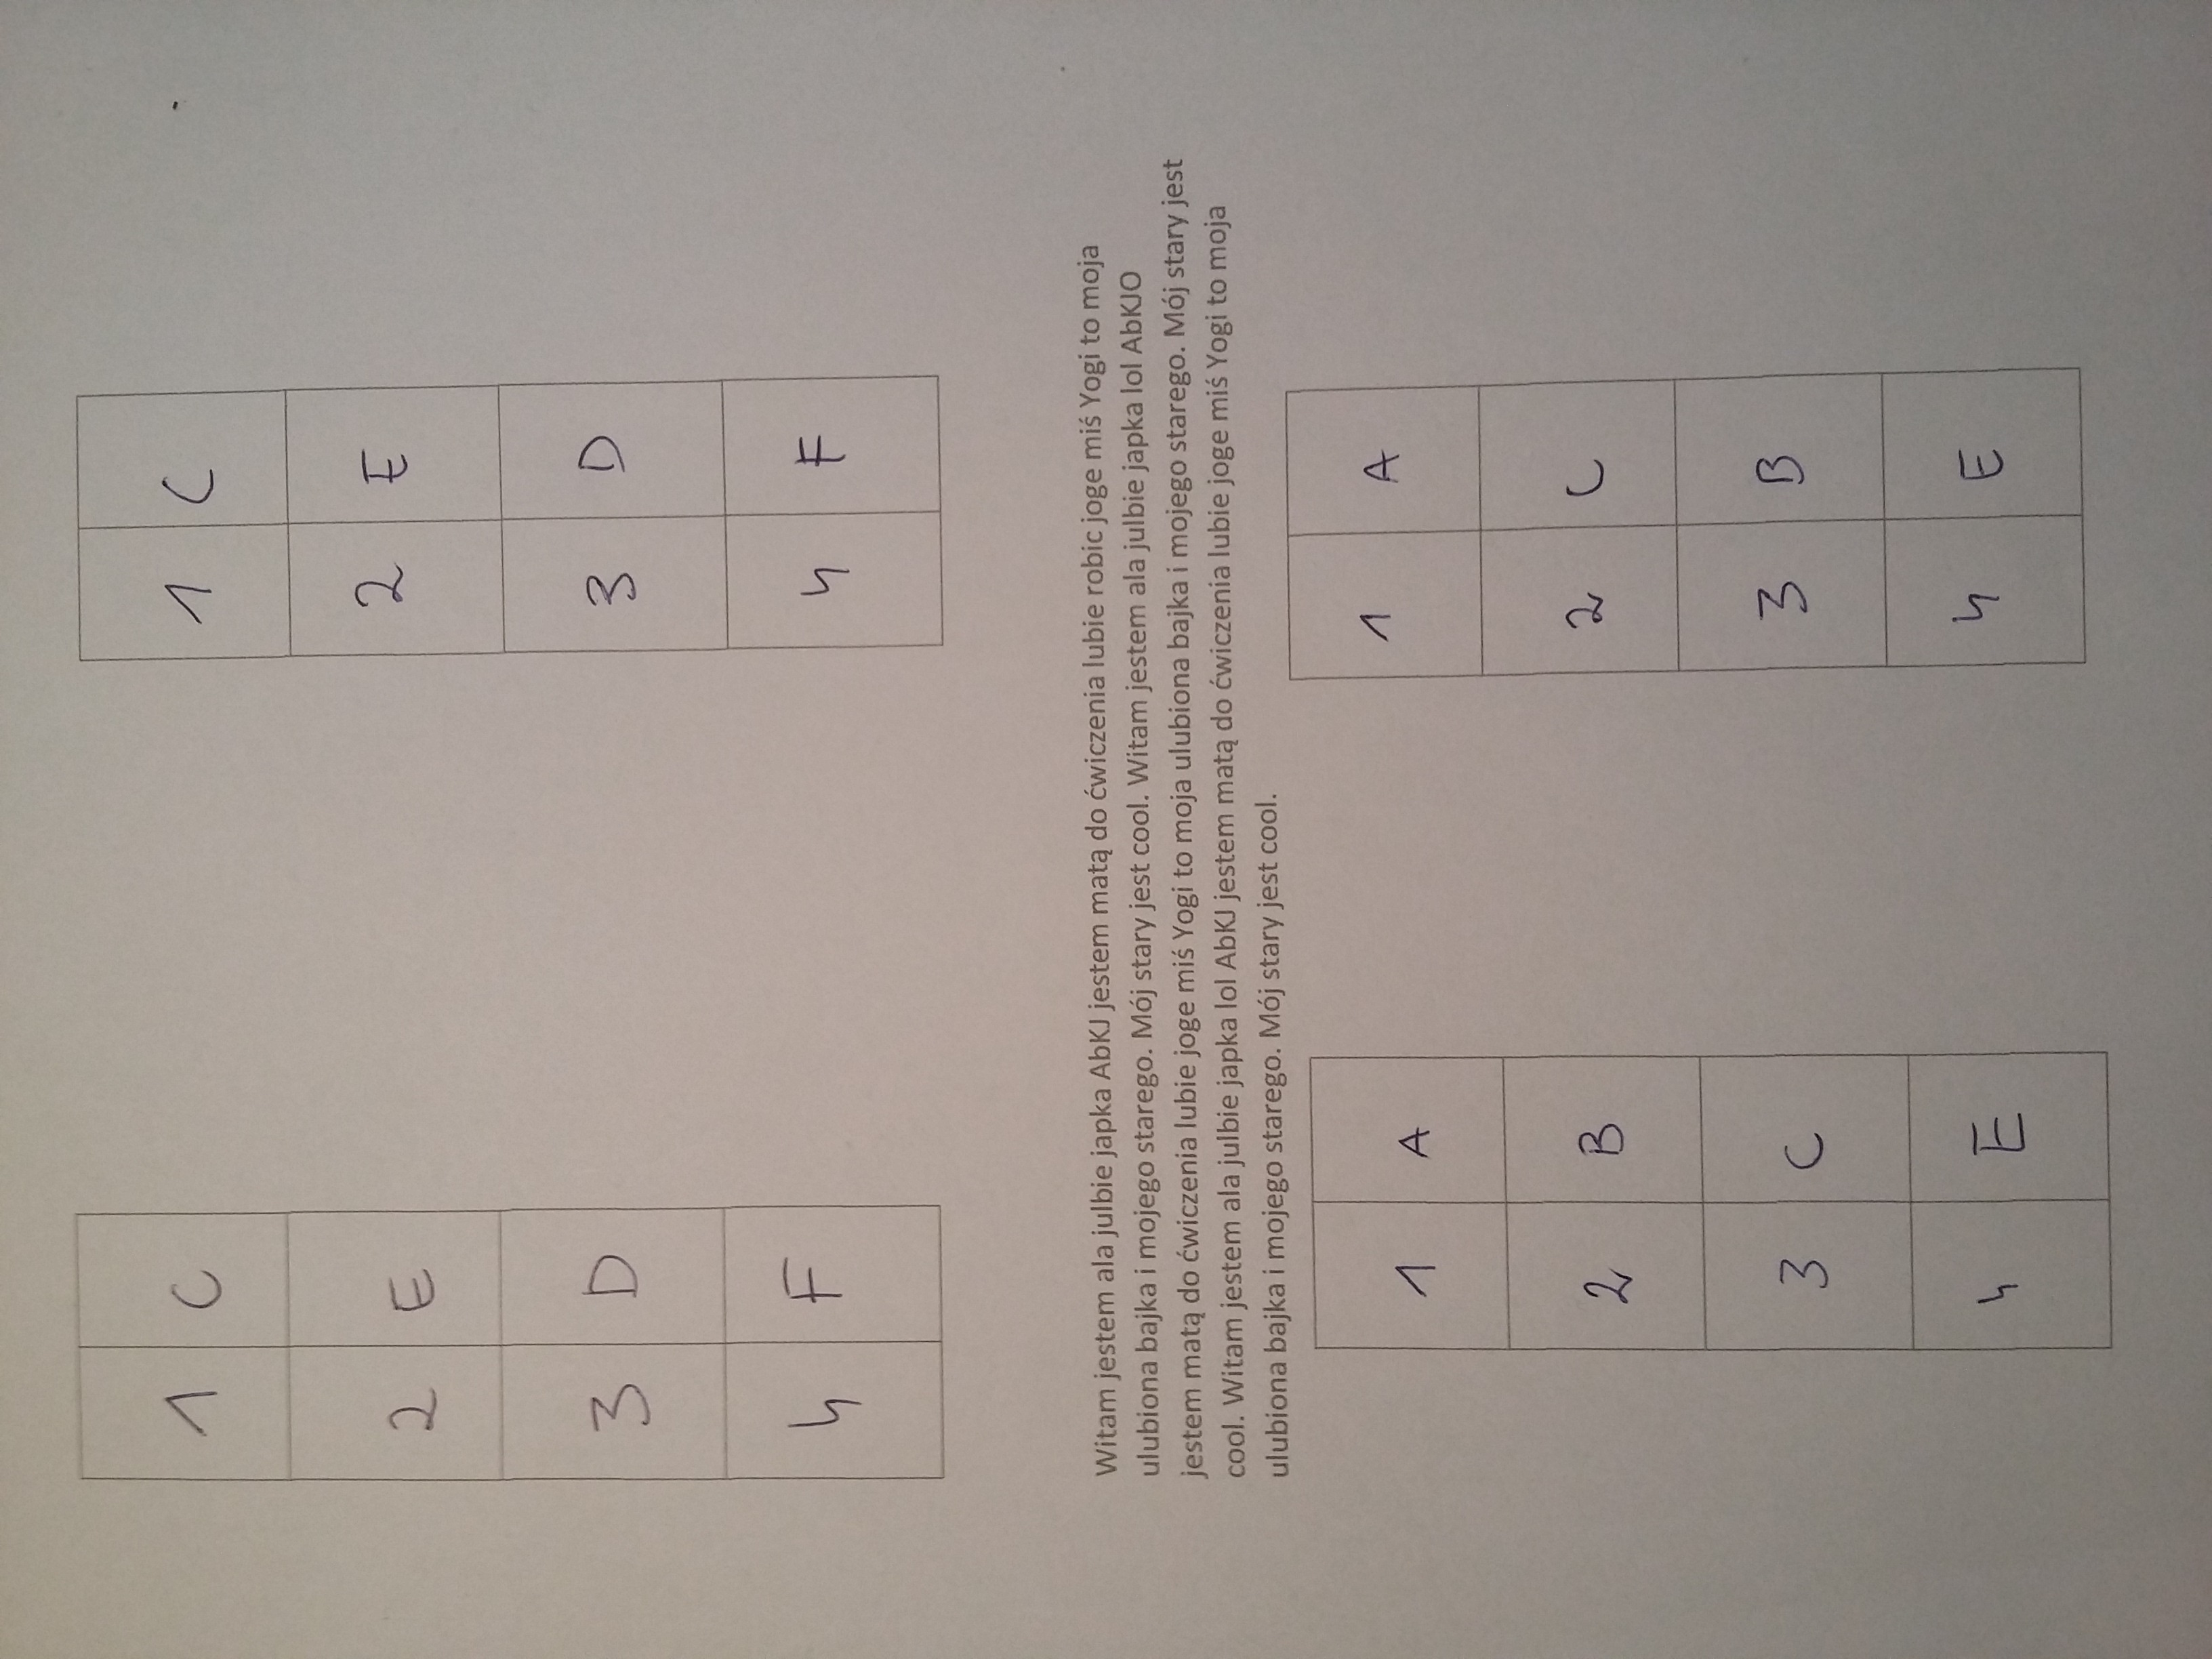 1 C
2 E
3 D
4 F
1 C
2 E
3 D
4 F
Witam jestem ala julbie japka AbKJ jestem matą do ćwiczenia lubie robic joge miś Yogi to moja
ulubiona bajka i mojego starego. Mój stary jest cool. Witam jestem ala julbie japka lol AbKJO
jestem matą do ćwiczenia lubie joge miś Yogi to moja ulubiona bajka i mojego starego. Mój stary jest
cool. Witam jestem ala julbie japka lol AbKJ jestem matą do ćwiczenia lubie joge miś Yogi to moja
ulubiona bajka i mojego starego. Mój stary jest cool.
1 A
2 B
3 C
4 E
1 A
2 C
3 B
4 E